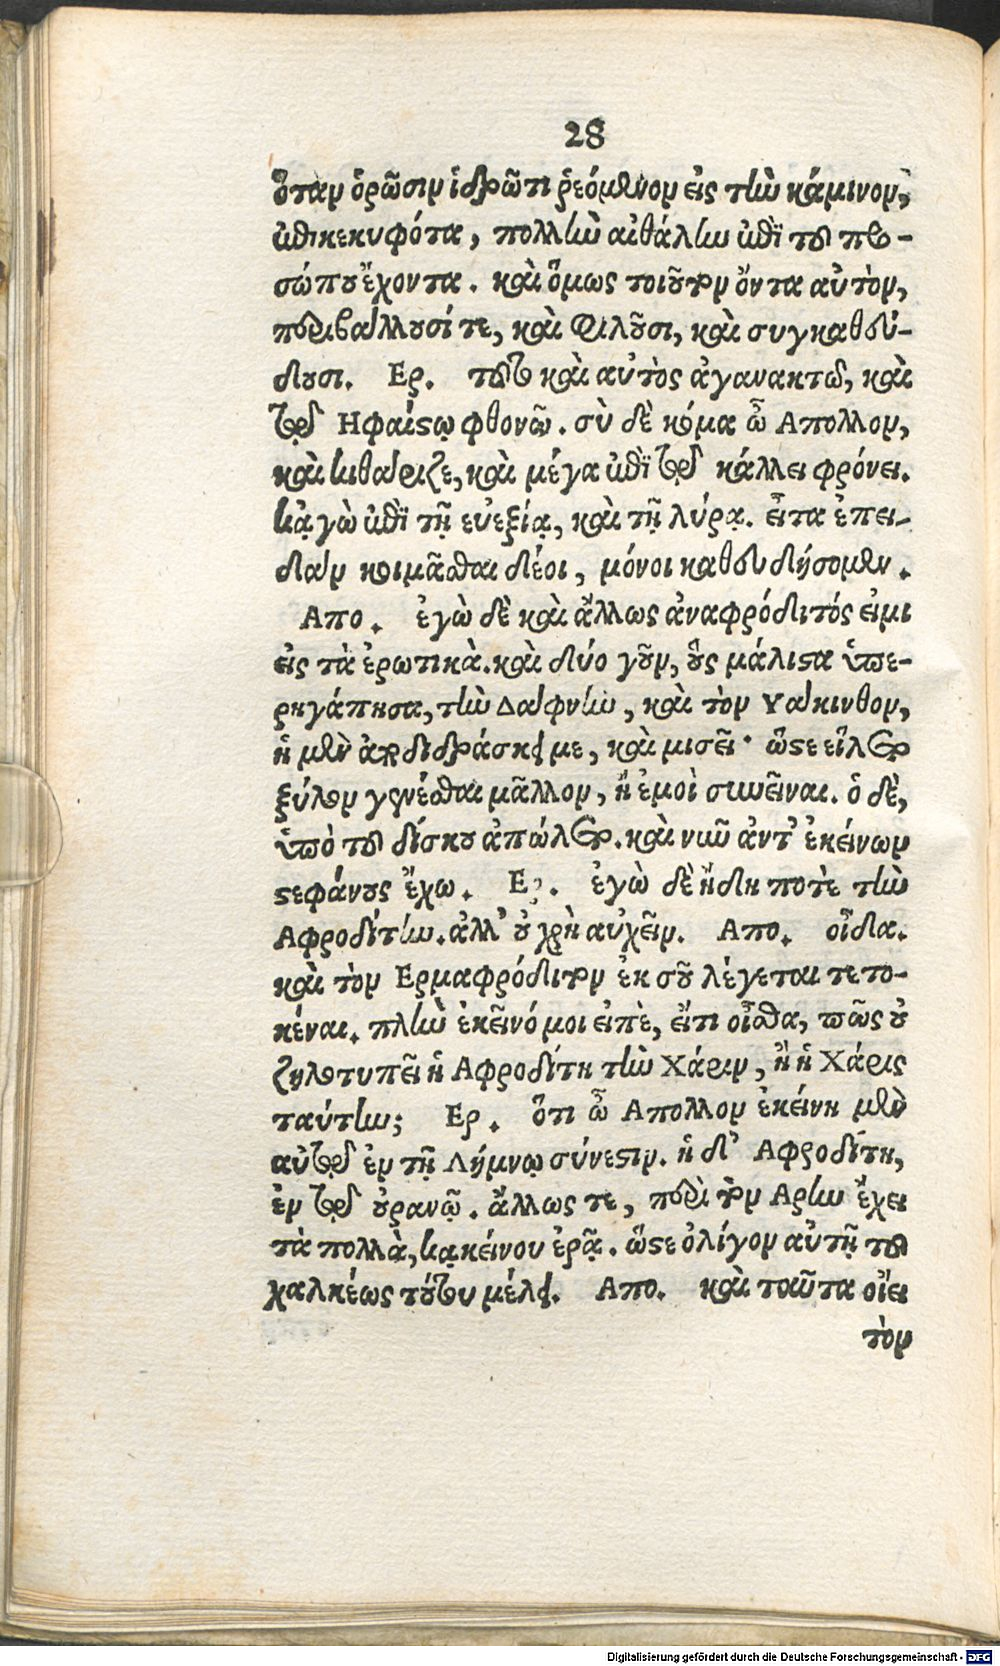 28
ὅταν ὁρῶσιν ἱδρῶτι ῥεόμενον εἰς τὴν κάμινον,
ἐπικεκυφότα, πολλὴν αἰθάλην ἐπὶ τοῦ προ-
σώπου ἔχοντα. καὶ ὅμως τοιοῦτον ὄντα αὐτὸν,
περιβάλλουσί τε, καὶ φιλοῦσι, καὶ συγκαθεύ-
δουσι. Ερ. τοῦτο καὶ αὐτὸς ἀγανακτῶ, καὶ
τῷ Ηφαίστῳ φθονῶ. σὺ δὲ κόμα ὦ Απολλον,
καὶ κιθάριζε, καὶ μέγα ἐπὶ τῷ κάλλει φρόνει.
κᾀγὼ ἐπὶ τῇ εὐεξίᾳ, καὶ τῇ λύρᾳ. εἶτα ἐπει-
δὰν κοιμᾶσθαι δέοι, μόνοι καθευδήσομεν.
Απο. ἐγὼ δὲ καὶ ἄλλως ἀναφρόδιτός εἰμι
εἰς τὰ ἐρωτικὰ. καὶ δύο γοῦν, οὓς μάλιστα ὑπε-
ρηγάπησα, τὴν Δάφνην, καὶ τὸν Υάκινθον,
ἡ μὲν ἀποδιδράσκει με, καὶ μισεῖ· ὥστε εἵλετο
ξύλον γενέσθαι μᾶλλον, ἢ ἐμοὶ συνεῖναι. ὁ δὲ,
ὑπὸ τοῦ δίσκου ἀπώλετο. καὶ νῦν ἀντ' ἐκείνων
στεφάνους ἔχω. Ερ. ἐγὼ δὲ ἤδη ποτὲ τὴν
Αφροδίτην. ἀλλ' οὐ χρὴ αὐχεῖν. Απο. οἶδα.
καὶ τὸν Ερμαφρόδιτον ἐκ σοῦ λέγεται τετο-
κέναι. πλὴν ἐκεῖνό μοι εἰπὲ, εἴ τι οἶσθα, πῶς οὐ
ζηλοτυπεῖ ἡ Αφροδίτη τὴν Χάριν, ἢ ἡ Χάρις
ταύτην; Ερ. ὅτι ὦ Απολλον ἐκείνη μὲν
αὐτῷ ἐν τῇ Λήμνῳ σύνεστιν. ἡ δ' Αφροδίτη,
ἐν τῷ οὐρανῷ. ἄλλως τε, περὶ τὸν Αρην ἔχει
τὰ πολλὰ, κᾀκείνου ἐρᾷ. ὥστε ὀλίγον αὐτῇ τοῦ
χαλκέως τούτου μέλει. Απο. καὶ ταῦτα οἴει
τὸν
Digitalisierung gefördert durch die Deutsche Forschungsgemeinschaft - DFG